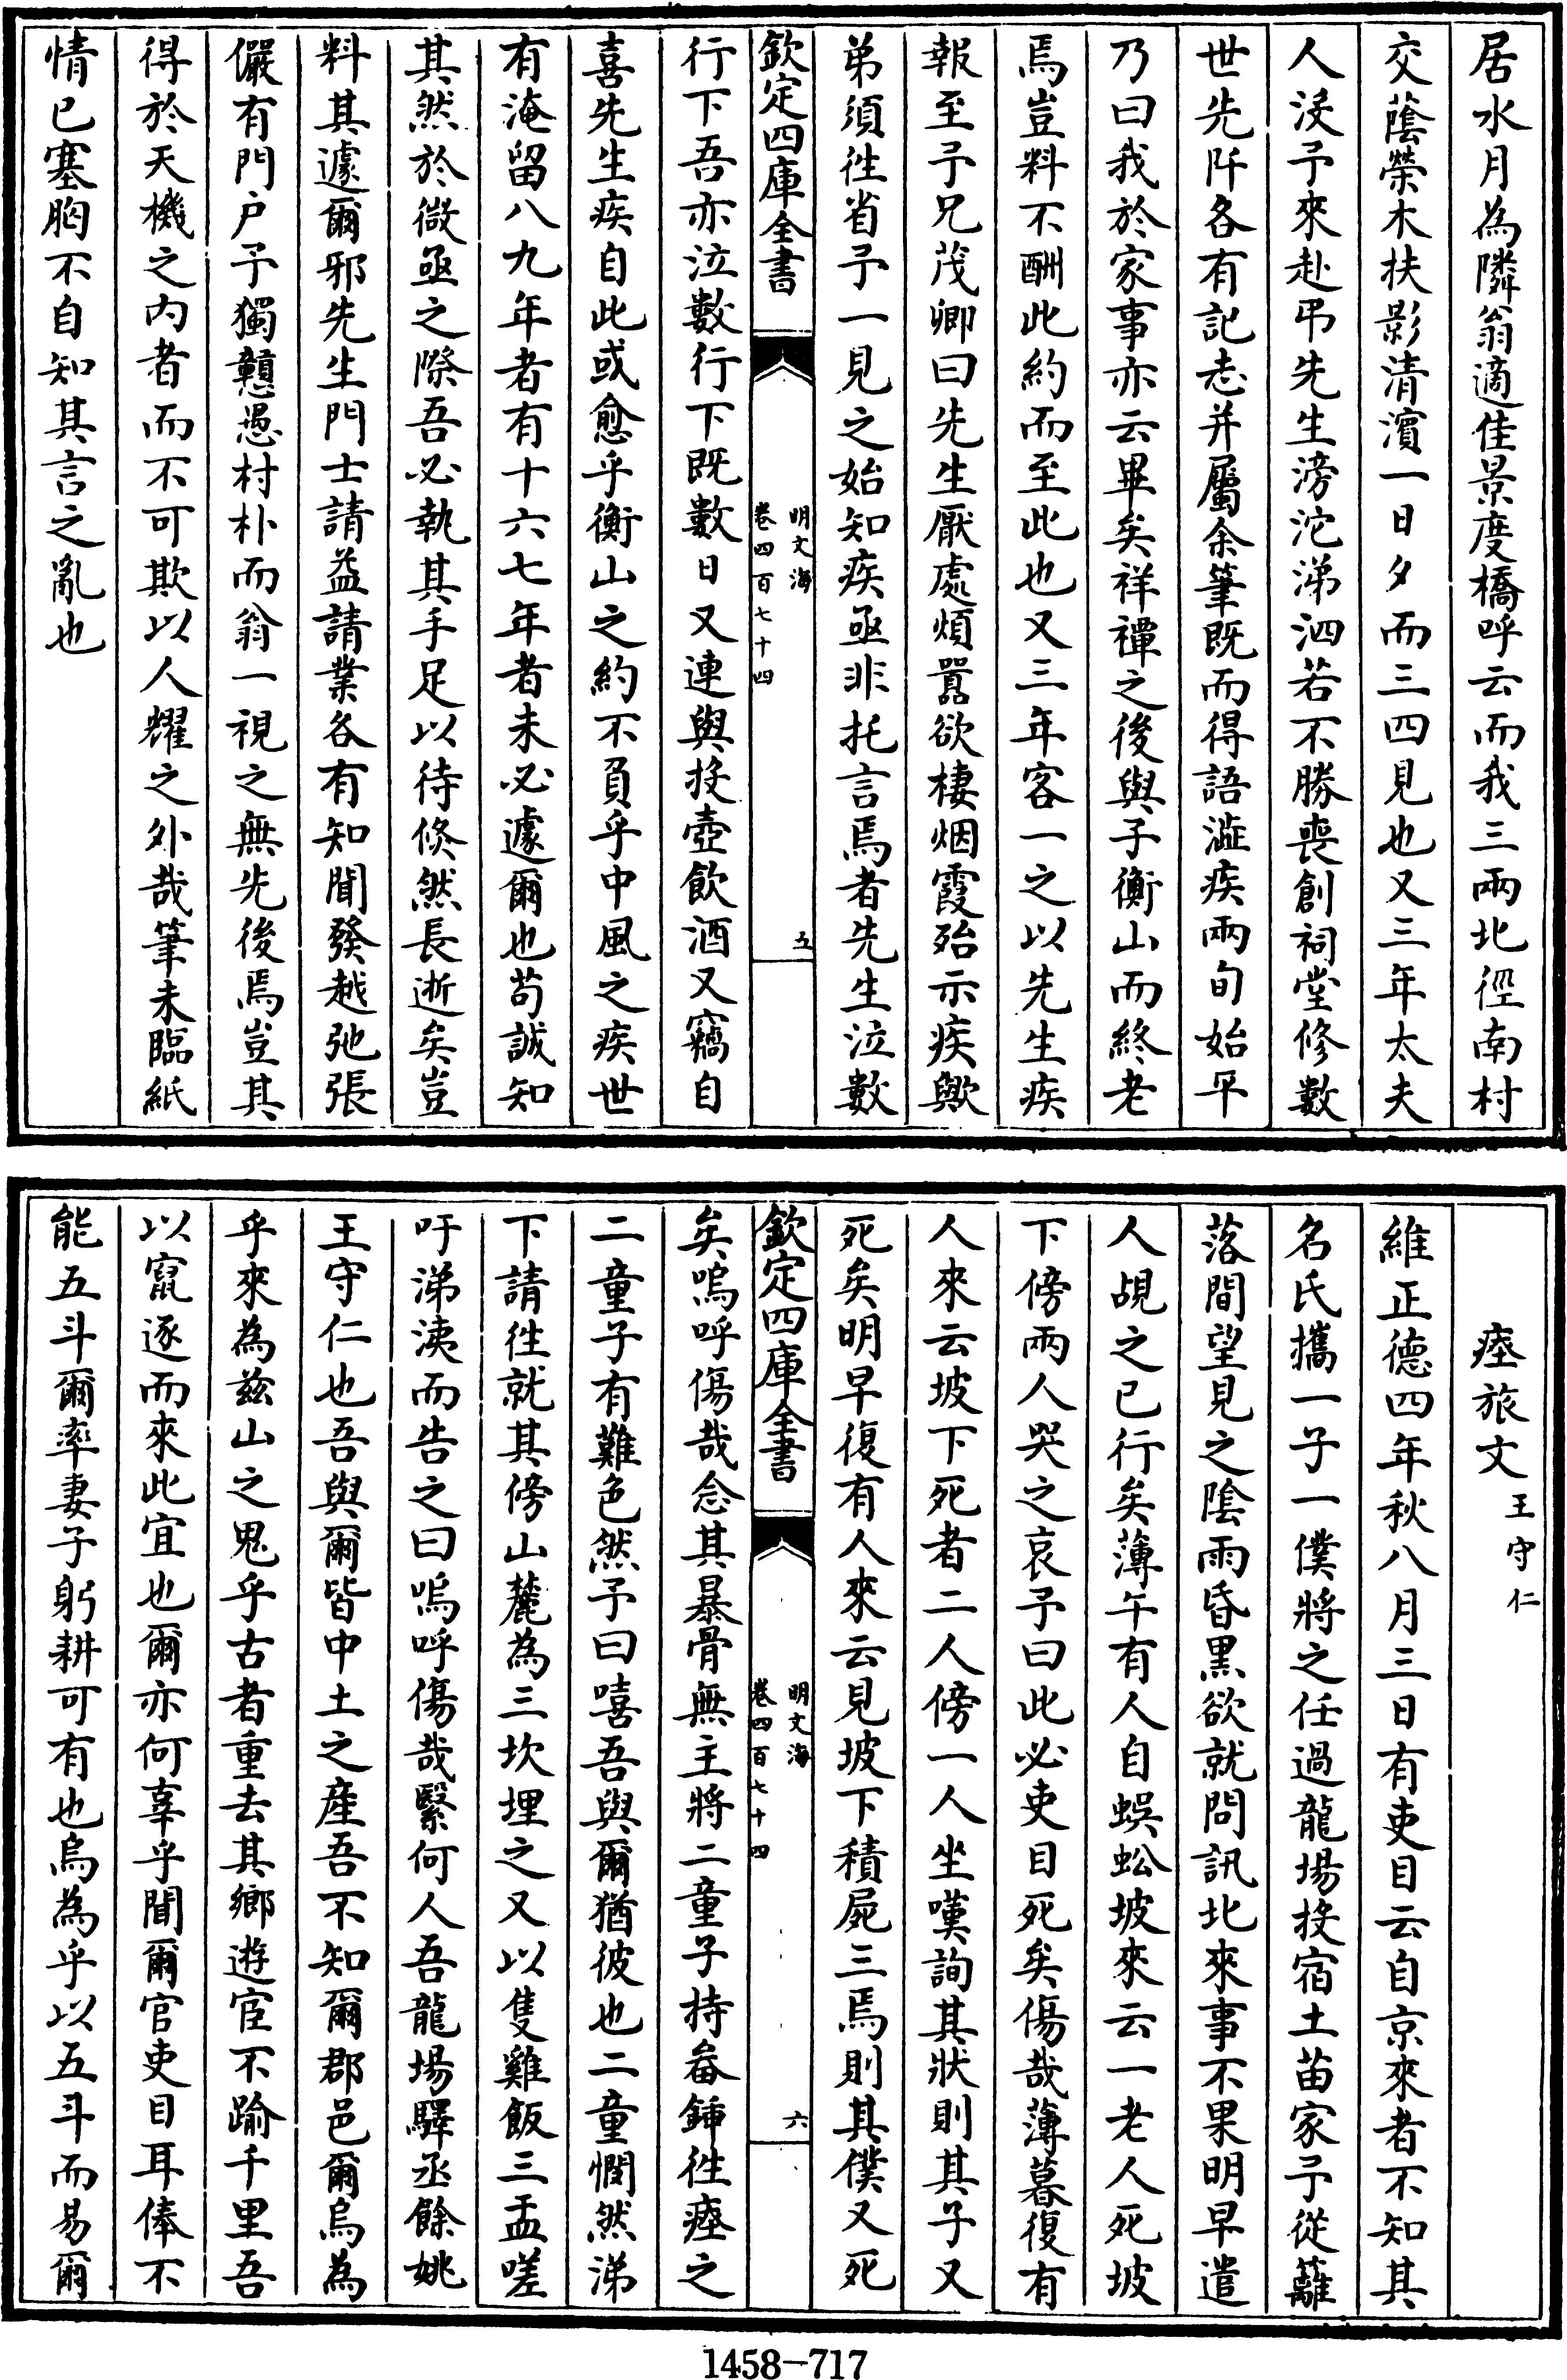 居水月為隣翁適佳景度橋呼云而我三兩北徑南村
交蔭榮木扶影清濵一日夕而三四見也又三年太夫
人没予來赴弔先生滂沱涕泗若不勝喪創祠堂修數
世先阡各有記志并屬余筆既而得語澁疾兩旬始平
乃曰我於家事亦云畢矣祥禫之後與子衡山而終老
焉豈料不酬此約而至此也又三年客一之以先生疾
報至予兄茂卿曰先生厭處煩囂欲棲烟霞殆示疾歟
弟須徃省予一見之始知疾亟非托言焉者先生泣數
欽定四庫全書
明文海
卷四百七十四
五
行下吾亦泣數行下既數日又連與投壺飲酒又竊自
喜先生疾自此或愈乎衡山之約不負乎中風之疾世
有淹留八九年者有十六七年者未必遽爾也苟誠知
其然於微亟之際吾必執其手足以待倏然長逝矣豈
料其遽爾邪先生門士請益請業各有知聞發越弛張
儼有門户予獨戇愚村朴而翁一視之無先後焉豈其
得於天機之内者而不可欺以人耀之外哉筆未臨紙
情已塞胸不自知其言之亂也
瘞旅文王守仁
維正德四年秋八月三日有吏目云自京來者不知其
名氏攜一子一僕將之任過龍場投宿土苗家予從籬
落間望見之隂雨昏黒欲就問訊北來事不果明早遣
人覘之已行矣薄午有人自蜈蚣坡來云一老人死坡
下傍兩人哭之哀予曰此必吏目死矣傷哉薄暮復有
人來云坡下死者二人傍一人坐嘆詢其狀則其子又
死矣明早復有人來云見坡下積屍三焉則其僕又死
欽定四庫全書
明文海
卷四百七十四
六
矣嗚呼傷哉念其暴骨無主將二童子持畚鍤徃瘞之
二童子有難色然予曰嘻吾與爾猶彼也二童憫然涕
下請徃就其傍山麓為三坎埋之又以隻雞飯三盂嗟
吁涕洟而告之曰嗚呼傷哉繄何人吾龍場驛丞餘姚
王守仁也吾與爾皆中土之産吾不知爾郡邑爾烏為
乎來為兹山之鬼乎古者重去其鄉遊宦不踰千里吾
以竄逐而來此宜也爾亦何辜乎聞爾官吏目耳俸不
能五斗爾率妻子躬耕可有也烏為乎以五斗而易爾
1458—717